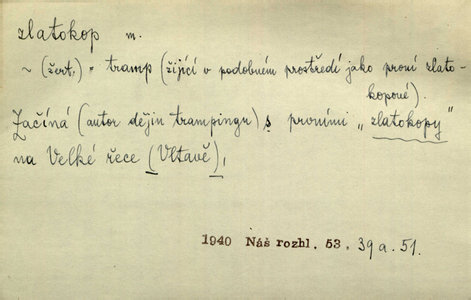 zlatokop m.
~ (žert.) = tramp (žijící v podobném prostředí jako první zlato-
kopové).
Začíná (autor dějin trampingu) s prvními „zlatokopy"
na Velké řece (Vltavě),
1940 Náš rozhl. 53, 39 a. 51.